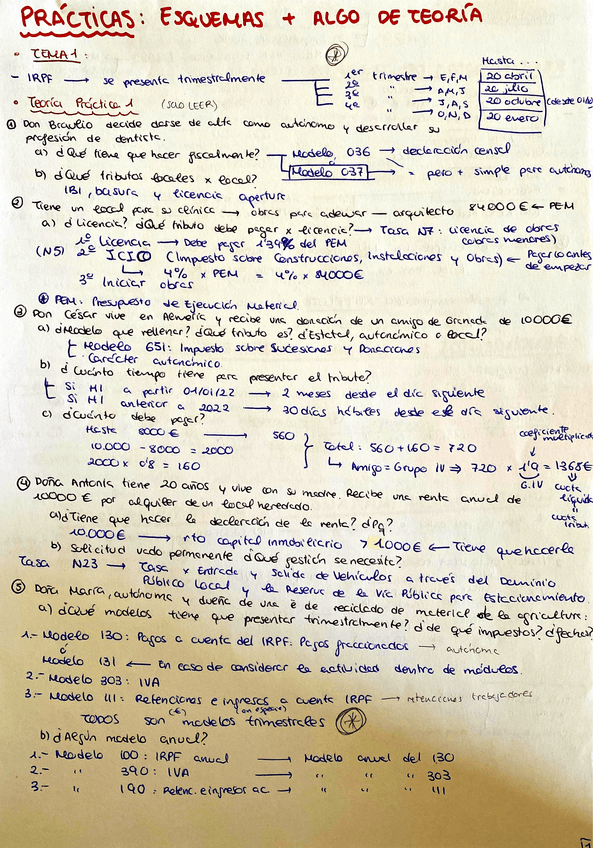 PRÁCTICAS: ESQUEMAS + ALGO DE TEORÍA
• TEMA 1:
Hasta ...
- IRPF → se presenta trimestralmente
1er trimestre → E, F, M 20 abril
2º " → A, M, J 20 julio
3º " → J, A, S 20 octubre (desde 01/10)
4º " → O, N, D 20 enero
• Teoría Práctica 1 (SOLO LEER)
① Don Braulio decide darse de alta como autónomo y desarrollar su
profesión de dentista.
a) ¿Qué tiene que hacer fiscalmente? Modelo 036 → declaración censal
Modelo 037 → = pero + simple para autónomos
b) ¿Qué tributos locales x local?
IBI, basura y licencia apertura
② Tiene un local para su clínica → obras para adecuar → arquitecto 84000€ ← PEM
a) ¿Licencia? ¿Qué tributo debe pagar x licencia? → Tasa N7: Licencia de obras
(obras menores)
1º Licencia → Debe pagar 1'39% del PEM
(N5) 2º ICIO (Impuesto sobre Construcciones, Instalaciones y Obras) ← Pagarlo antes
de empezar
4% x PEM = 4% x 84000€
3º Iniciar obras
PEM: Presupuesto de Ejecución Material.
③ Don César vive en Almería y recibe una donación de un amigo de Granada de 10000€
a) ¿Modelo que rellenar? ¿Qué tributo es? ¿Estatal, autonómico o local?
Modelo 651: Impuesto sobre Sucesiones y Donaciones
Carácter autonómico
b) ¿Cuánto tiempo tiene para presentar el tributo?
Si HI a partir 01/01/22 → 2 meses desde el día siguiente
Si HI anterior a 2022 → 30 días hábiles desde ese día siguiente.
c) ¿Cuánto debe pagar?
Hasta 8000€ → 560
coeficiente
multiplicador
10.000 - 8000 = 2000
Total: 560 + 160 = 720
2000 x 0'8 = 160
Amigo = Grupo IV ⇒ 720 x 1'9 = 1368€
G.IV
cuota
líquida
cuota
tribut.
④ Doña Antonia tiene 20 años y vive con su madre. Recibe una renta anual de
10000€ por alquiler de un local heredado.
a) ¿Tiene que hacer la declaración de la renta? ¿Pq?
10.000€ → rto capital inmobiliario > 1000€ ← Tiene que hacerla
b) Solicitud vado permanente ¿Qué gestión se necesita?
Tasa N23 → Tasa x Entrada y Salida de Vehículos a través del Dominio
Público Local y la Reserva de la Vía Pública para Estacionamiento.
⑤ Doña María, autónoma y dueña de una e de reciclado de material de la agricultura:
a) ¿Qué modelos tiene que presentar trimestralmente? ¿de qué impuestos? ¿fechas?
1.- Modelo 130: Pagos a cuenta del IRPF: Pagos fraccionados → autónoma
ó
Modelo 131 ← En caso de considerar la actividad dentro de módulos.
2.- Modelo 303: IVA
3.- Modelo 111: Retenciones e ingresos a cuenta IRPF → retenciones trabajadores
(€) (en especie)
TODOS son modelos trimestrales
b) ¿Algún modelo anual?
1.- Modelo 100: IRPF anual → Modelo anual del 130
2.- " 390: IVA → " " " 303
3.- " 190: Retenc. e ingresos ac → " " " 111